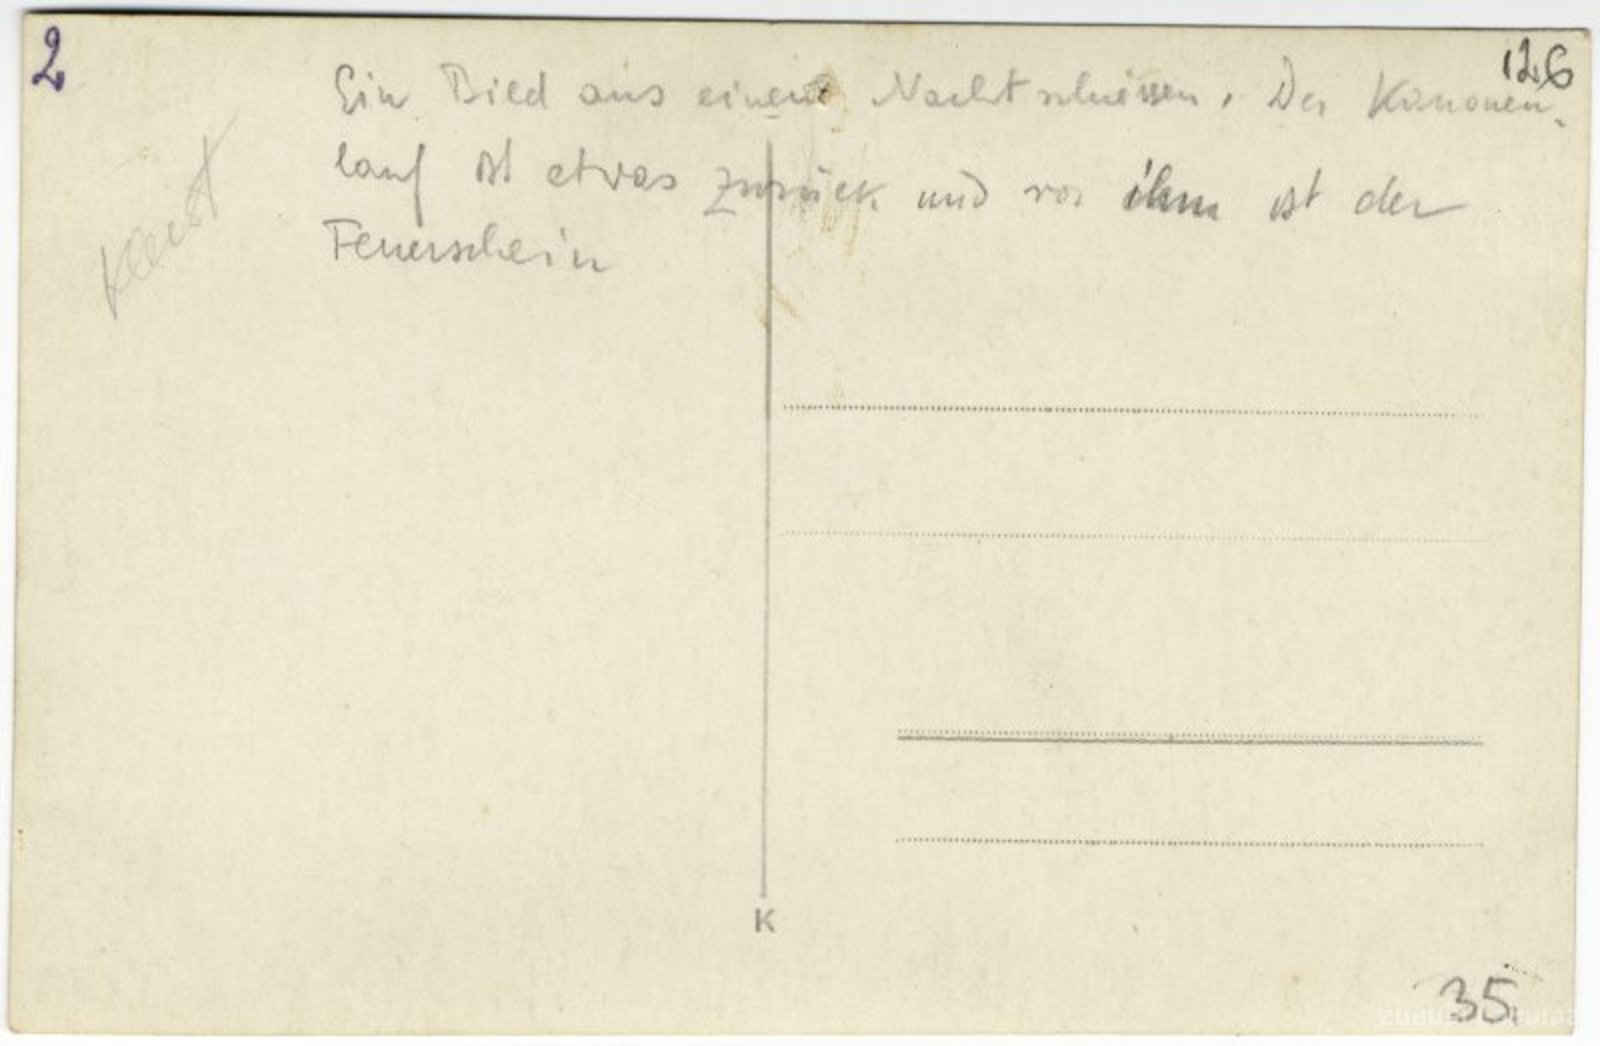 2
126
Ein Bild aus einem Nachtschiessen. Der Kanonen-
lauf ist etwas zurück und vor ihm ist der
Feuerschein
K
35